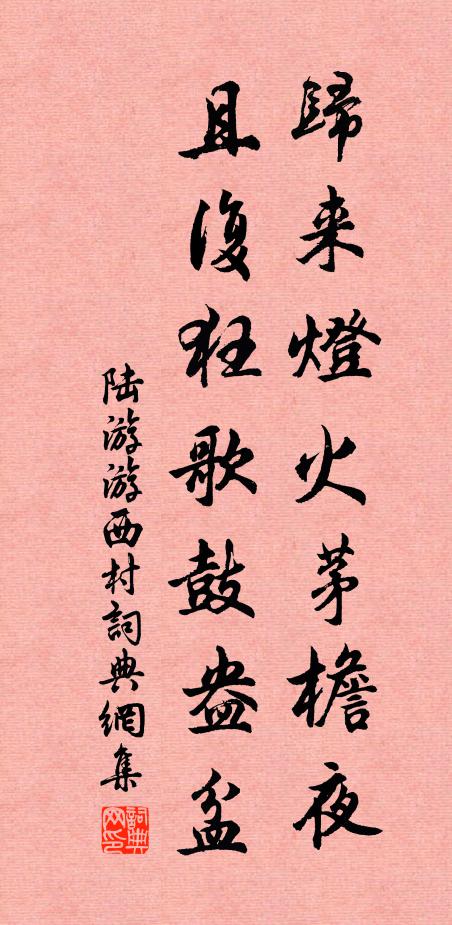 歸来燈火茅檐夜
且復狂歌鼓盎盆
陆游游西村詞典網集
詞典网印